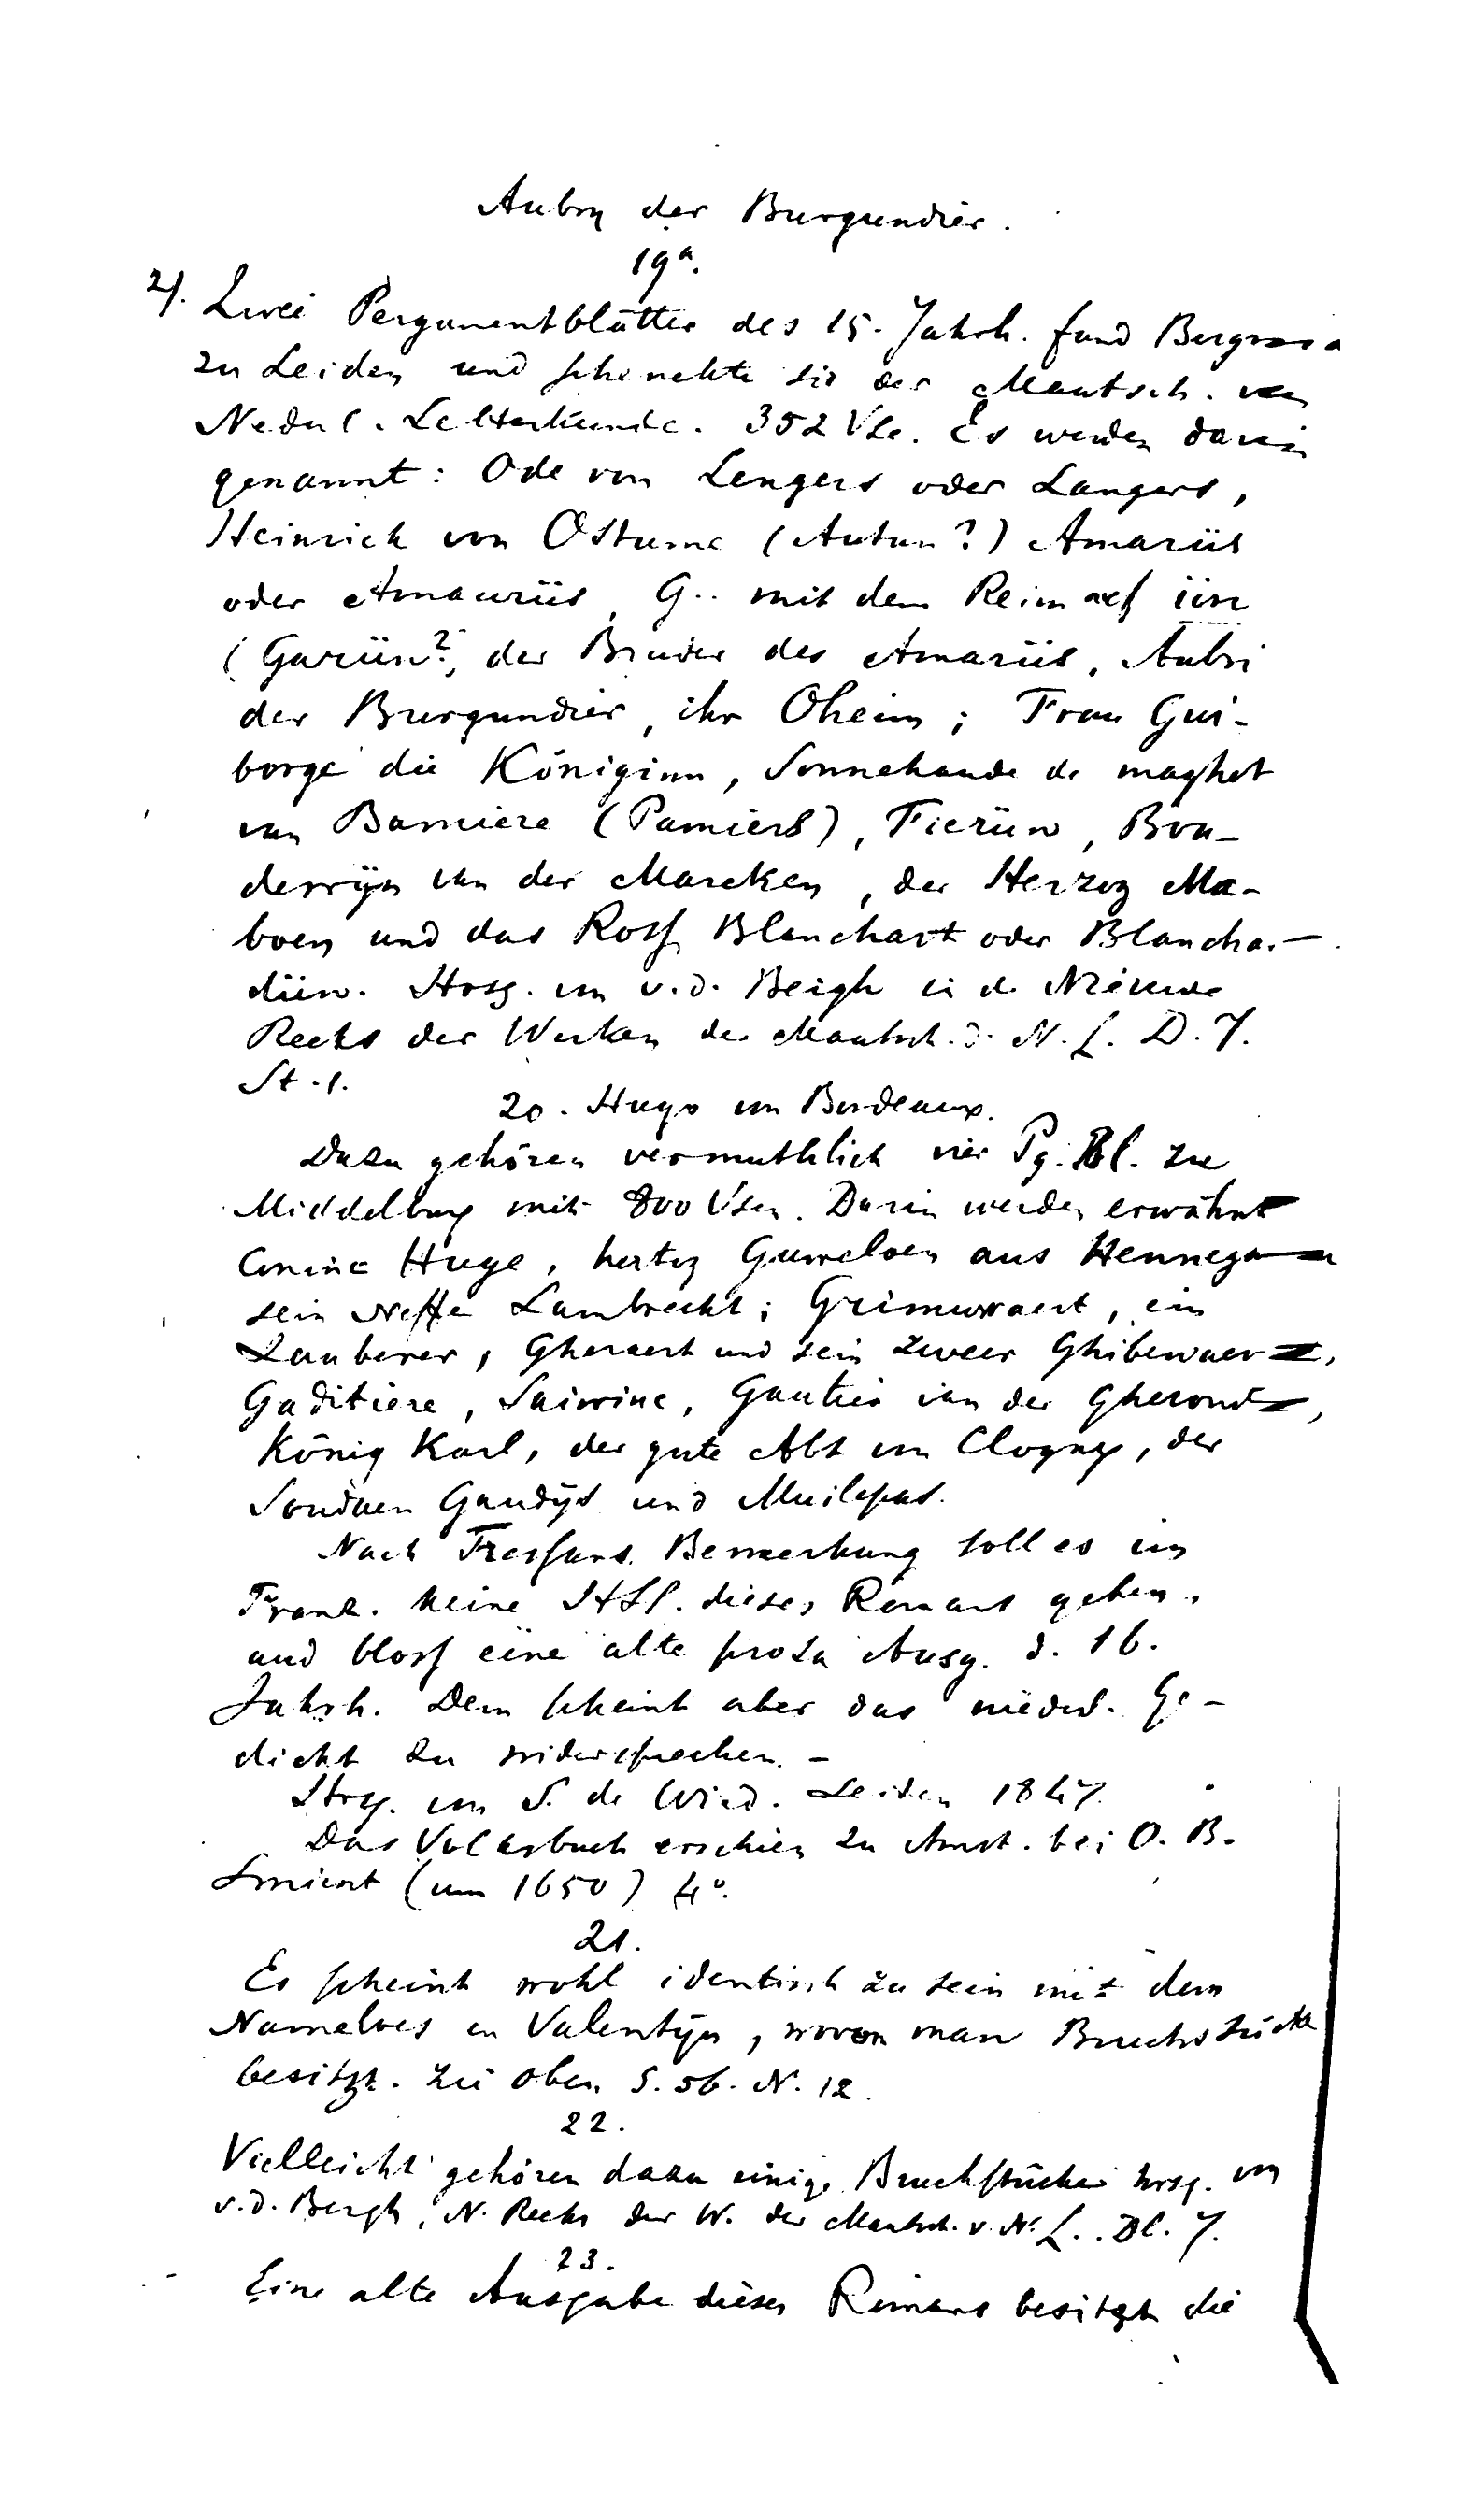 Aubry der Burgundier.
19a.
Zwei Pergamentblätter des 15. Jahrh. fand Bergman
zu Leiden und schenckte sie der Maatsch. van
Nederl. Letterkunde. 352 Vse. Es werden darin
genannt: Ode von Lengers oder Langers,
Heinrich von Ostume (Autun?) Amariis
oder Amauriis, G.. mit dem Reim auf iin
(Gariin?, der Bruder des Amariis, Aubri
der Burgundier, ihr Oheim; Frau Gui-
borge die Königinn, Sonnehaude de maghet
van Bamiere (Pamiers), Fierün, Bou-
derrijn van der Marcken, der Herzog Ma-
boen und das Ross Blanchart oder Blanchar-
diin. Hrsg. von v. d. Bergh in d. Nieuwe
Reeks der Werken der Maatsch. d. N. L. D. 7.
St. 1.
20. Hugo von Bordeaux.
Dazu gehören vermuthlich vier Pg. Bl. zu
Middelburg mit 800 Vsen. Darin werden erwähnt
Coninc Huge, hertog Guweloen aus Hennegau
sein Neffe Lambrecht; Grimuwaert, ein
Zauberer, Gheraert und sein zweer Ghibewaert,
Gaditiere, Saiwine, Gautier van der Gheronde,
König Karl, der gute Abt von Clogny, der
Soudaen Gaudijs und Muilepas.
Nach Tressans Bemerkung soll es im
Franz. keine HSS. dieses Romans geben,
und bloss eine alte prosa Ausg. d. 16.
Jahrh. Dem scheint aber das niederl. Ge-
dicht zu widersprechen. -
Hrsg. von S. de Wind. Leiden 1847.
Das Volksbuch erschien zu Amst. bei O. B.
Smient (um 1650) 4o.
21.
Es scheint wohl identisch zu sein mit dem
Nameloes en Valentijn, wovon man Bruchstücke
besitzt. Zu oben S. 56. N. 12.
22.
Vielleicht gehören dazu einige Bruchstücke hrsg. von
v. d. Bergh, N. Reeks der W. der Maatsch. v. N. L. Dl. 7.
23.
Eine alte Ausgabe dieses Romans besitzt die